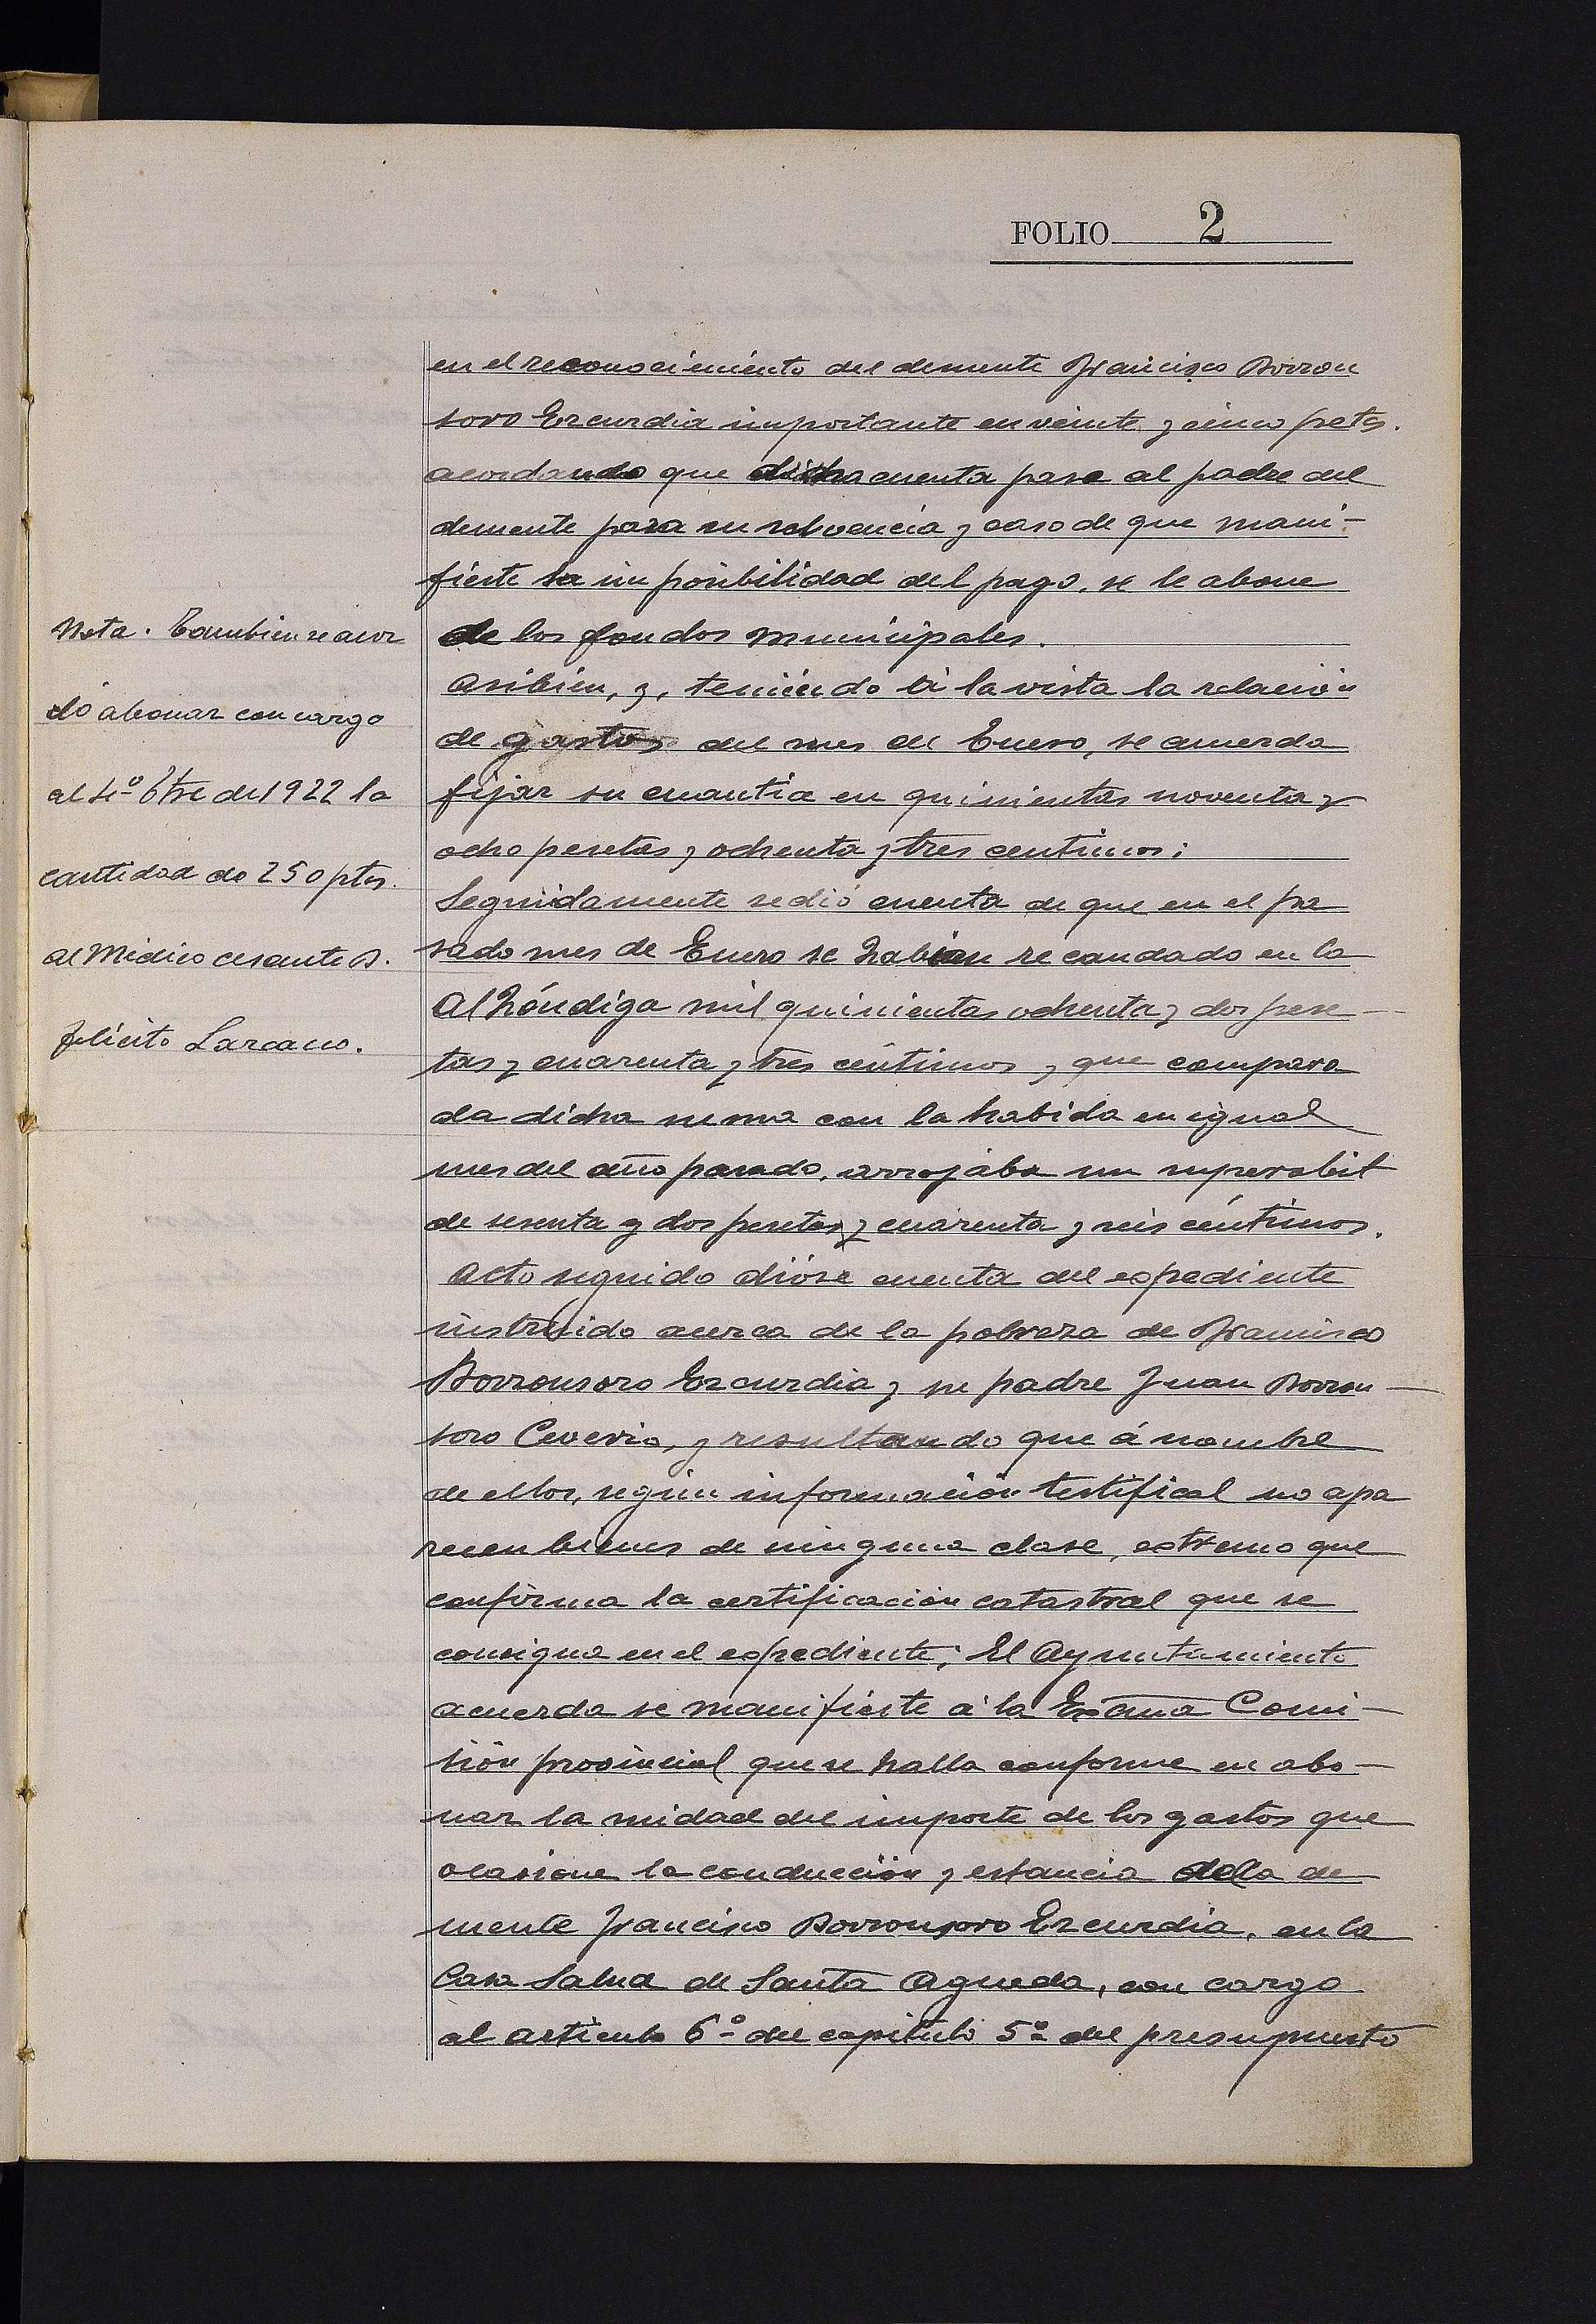 FOLIO 2
en el reconocimiento del demente Francisco Borron
soro Ezcurdia importante en veinte y cinco petas.
acordando que dicha cuenta pase al padre del
demente para su solvencia y caso de que mani-
fieste su imposibilidad del pago, se le abone
de los fondos municipales.
Asibien, y, teniendo á la vista la relación
de gastos del mes de Enero, se acuerda
fijar su cuantia en quinientas noventa y
ocho pesetas y ochenta y tres centimos;
Seguidamente se dió cuenta de que en el pa
sado mes de Enero se habian recaudado en la
Alhóndiga mil quinientas ochenta y dos pese-
tas y cuarenta y tres céntimos y que compara
da dicha suma con la habida en igual
mes del año pasado, arrojaba un superabit
de sesenta y dos pesetas y cuarenta y seis céntimos.
Acto seguido dióse cuenta del espediente
instruido acerca de la pobreza de Francisco
Borronsoro Ezcurdia y su padre Juan Borron-
soro Ceverio, y resultando que á nombre
de ellos, según información testifical no apa
recen bienes de ninguna clase, estremo que
confirma la certificación catastral que se
consigna en el espediente; El Ayuntamiento
acuerda se manifieste á la Excma Comi-
sión provincial que se halla conforme en abo-
nar la midad del importe de los gastos que
ocasione la conducción y estancia dela de
mente Francisco Borronsoro Ezcurdia, en la
Casa Salud de Santa Agueda, con cargo
al articulo 6º del capitulo 5º del presupuesto
Nota. Tambien se acor
dó abonar con cargo
al 4º Ctre de 1922 la
cantidad de 250 ptas.
al Médico cesante D.
Felicito Larcano.